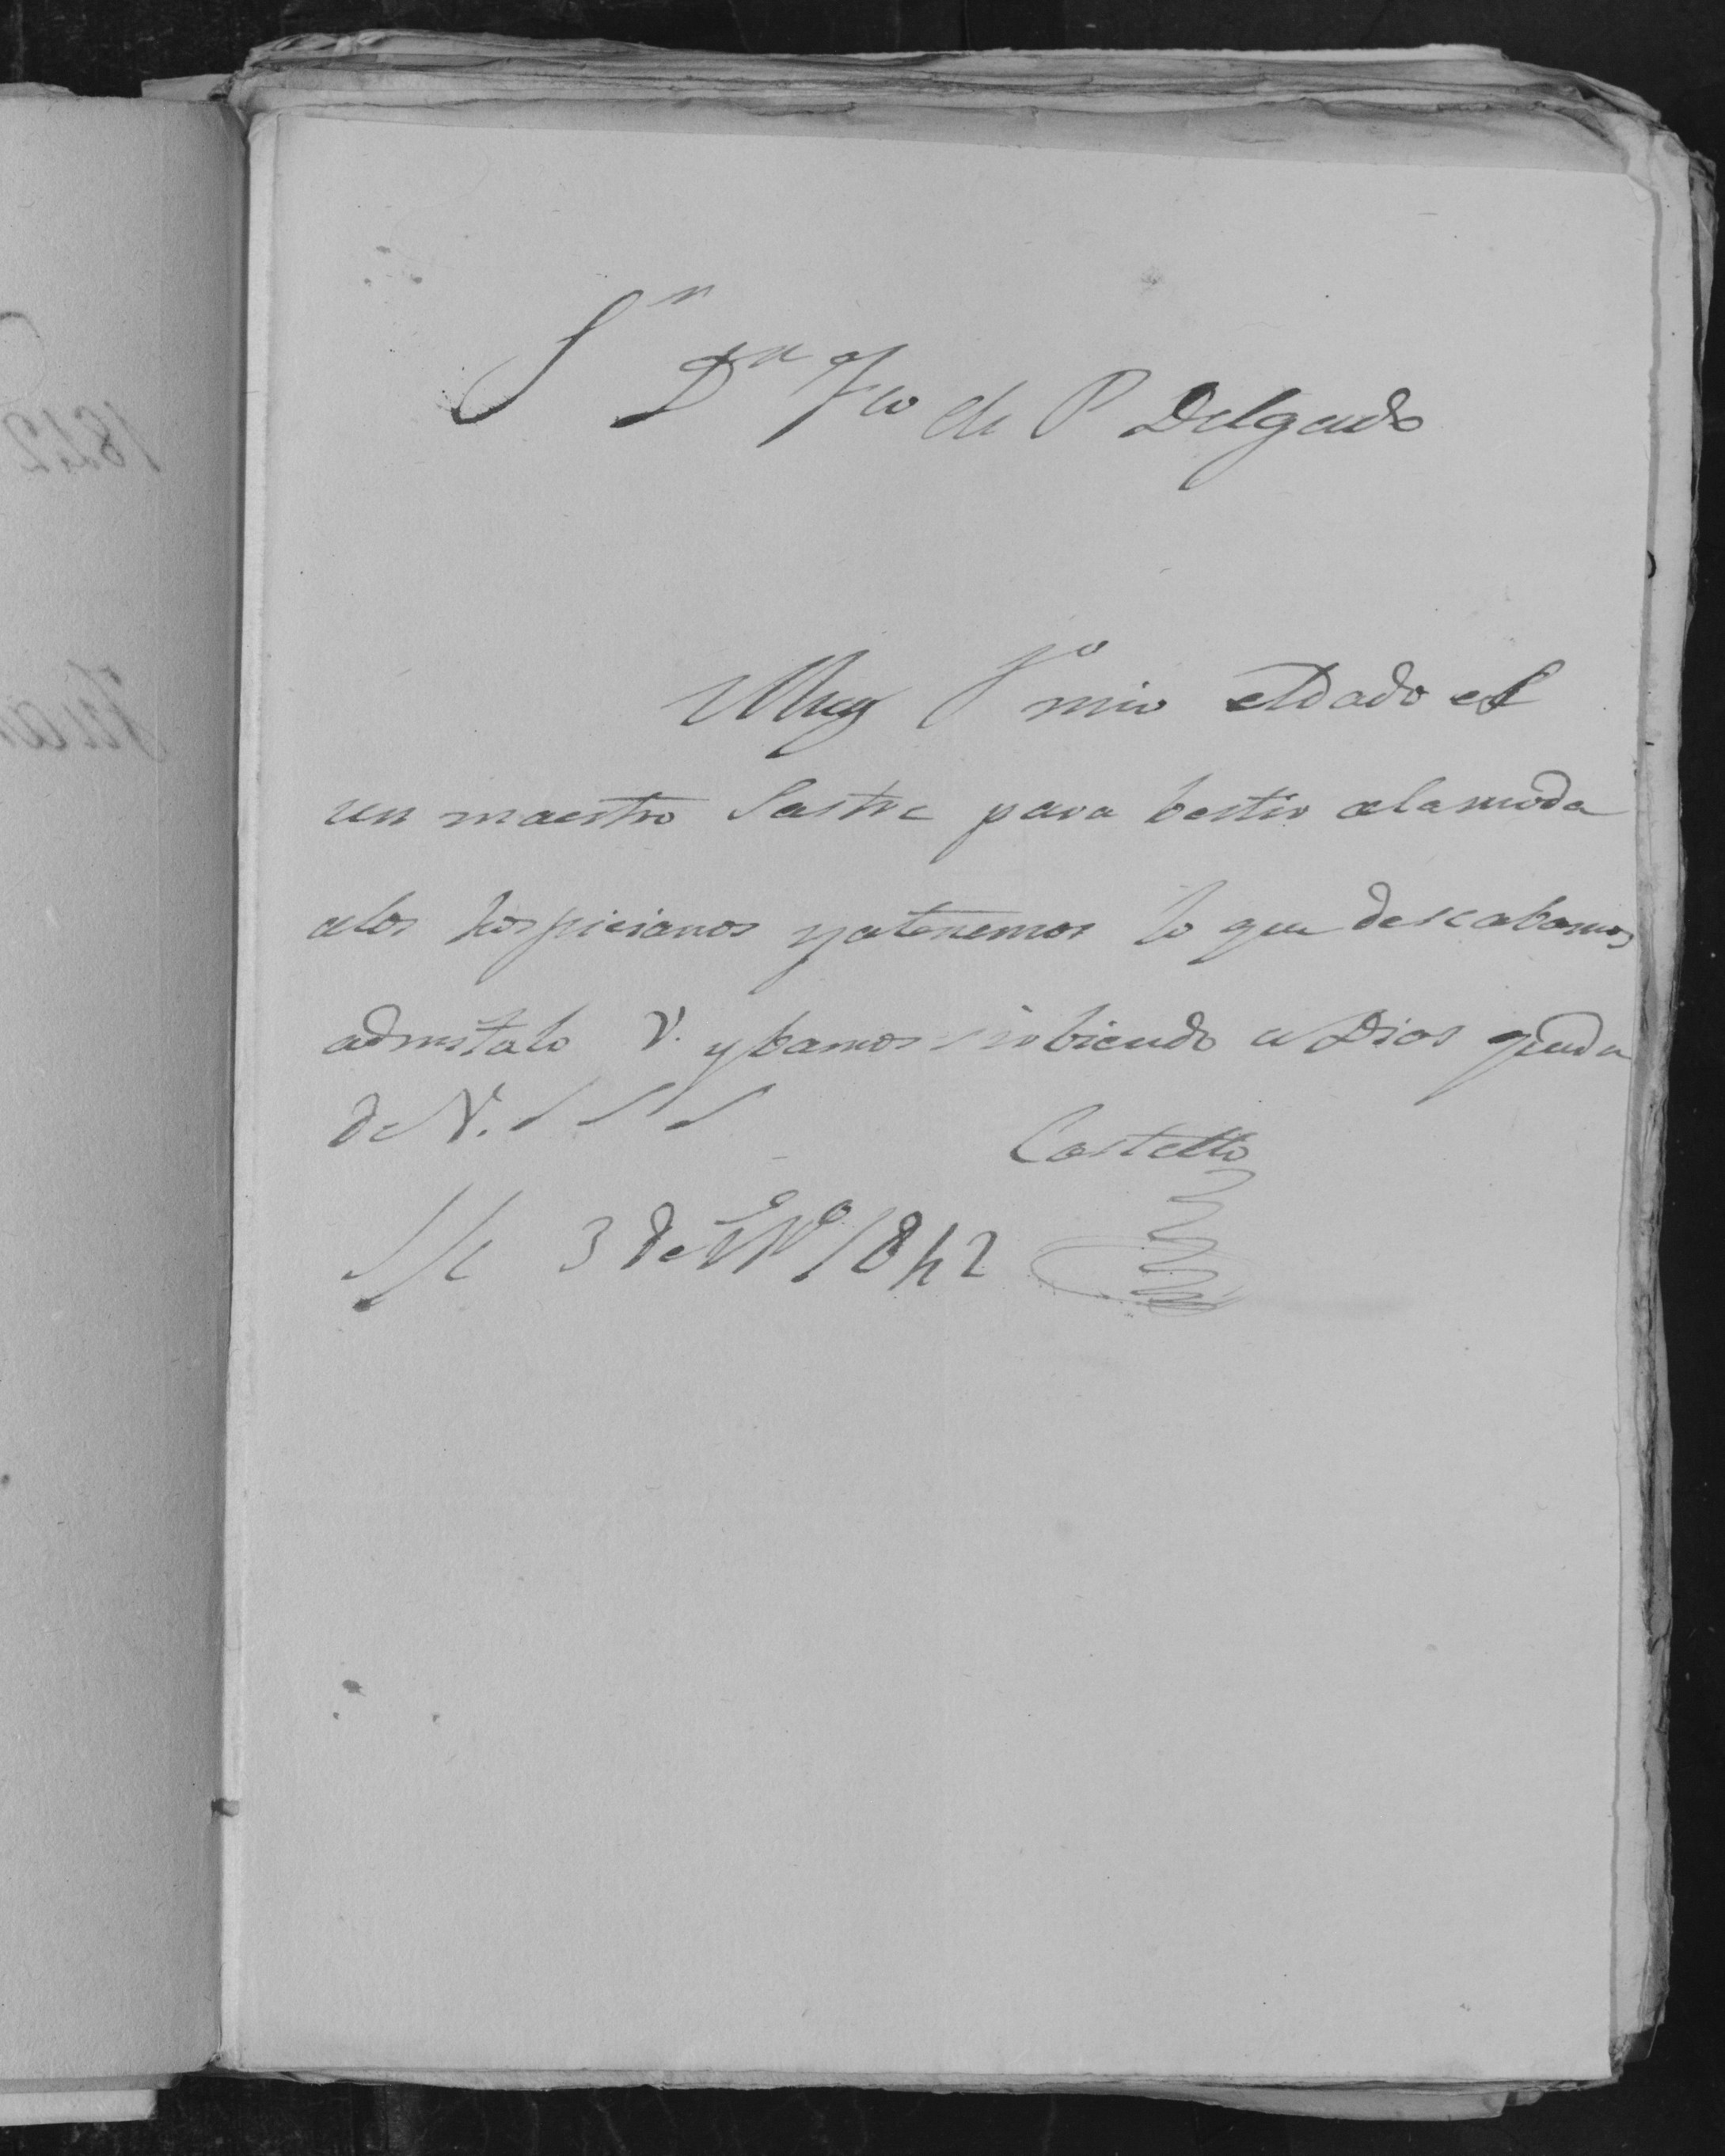 Sn
Dn Fco de P Delgado
Muy Sr mio el dado es
un maestro Sastre para bestir alamoda
alos hospicianos yatenemos lo que deseabamos
admitalo V. y bamos sirbiendo a Dios queda
de V. S S S
Castello
S/c 3 de En.o 1842